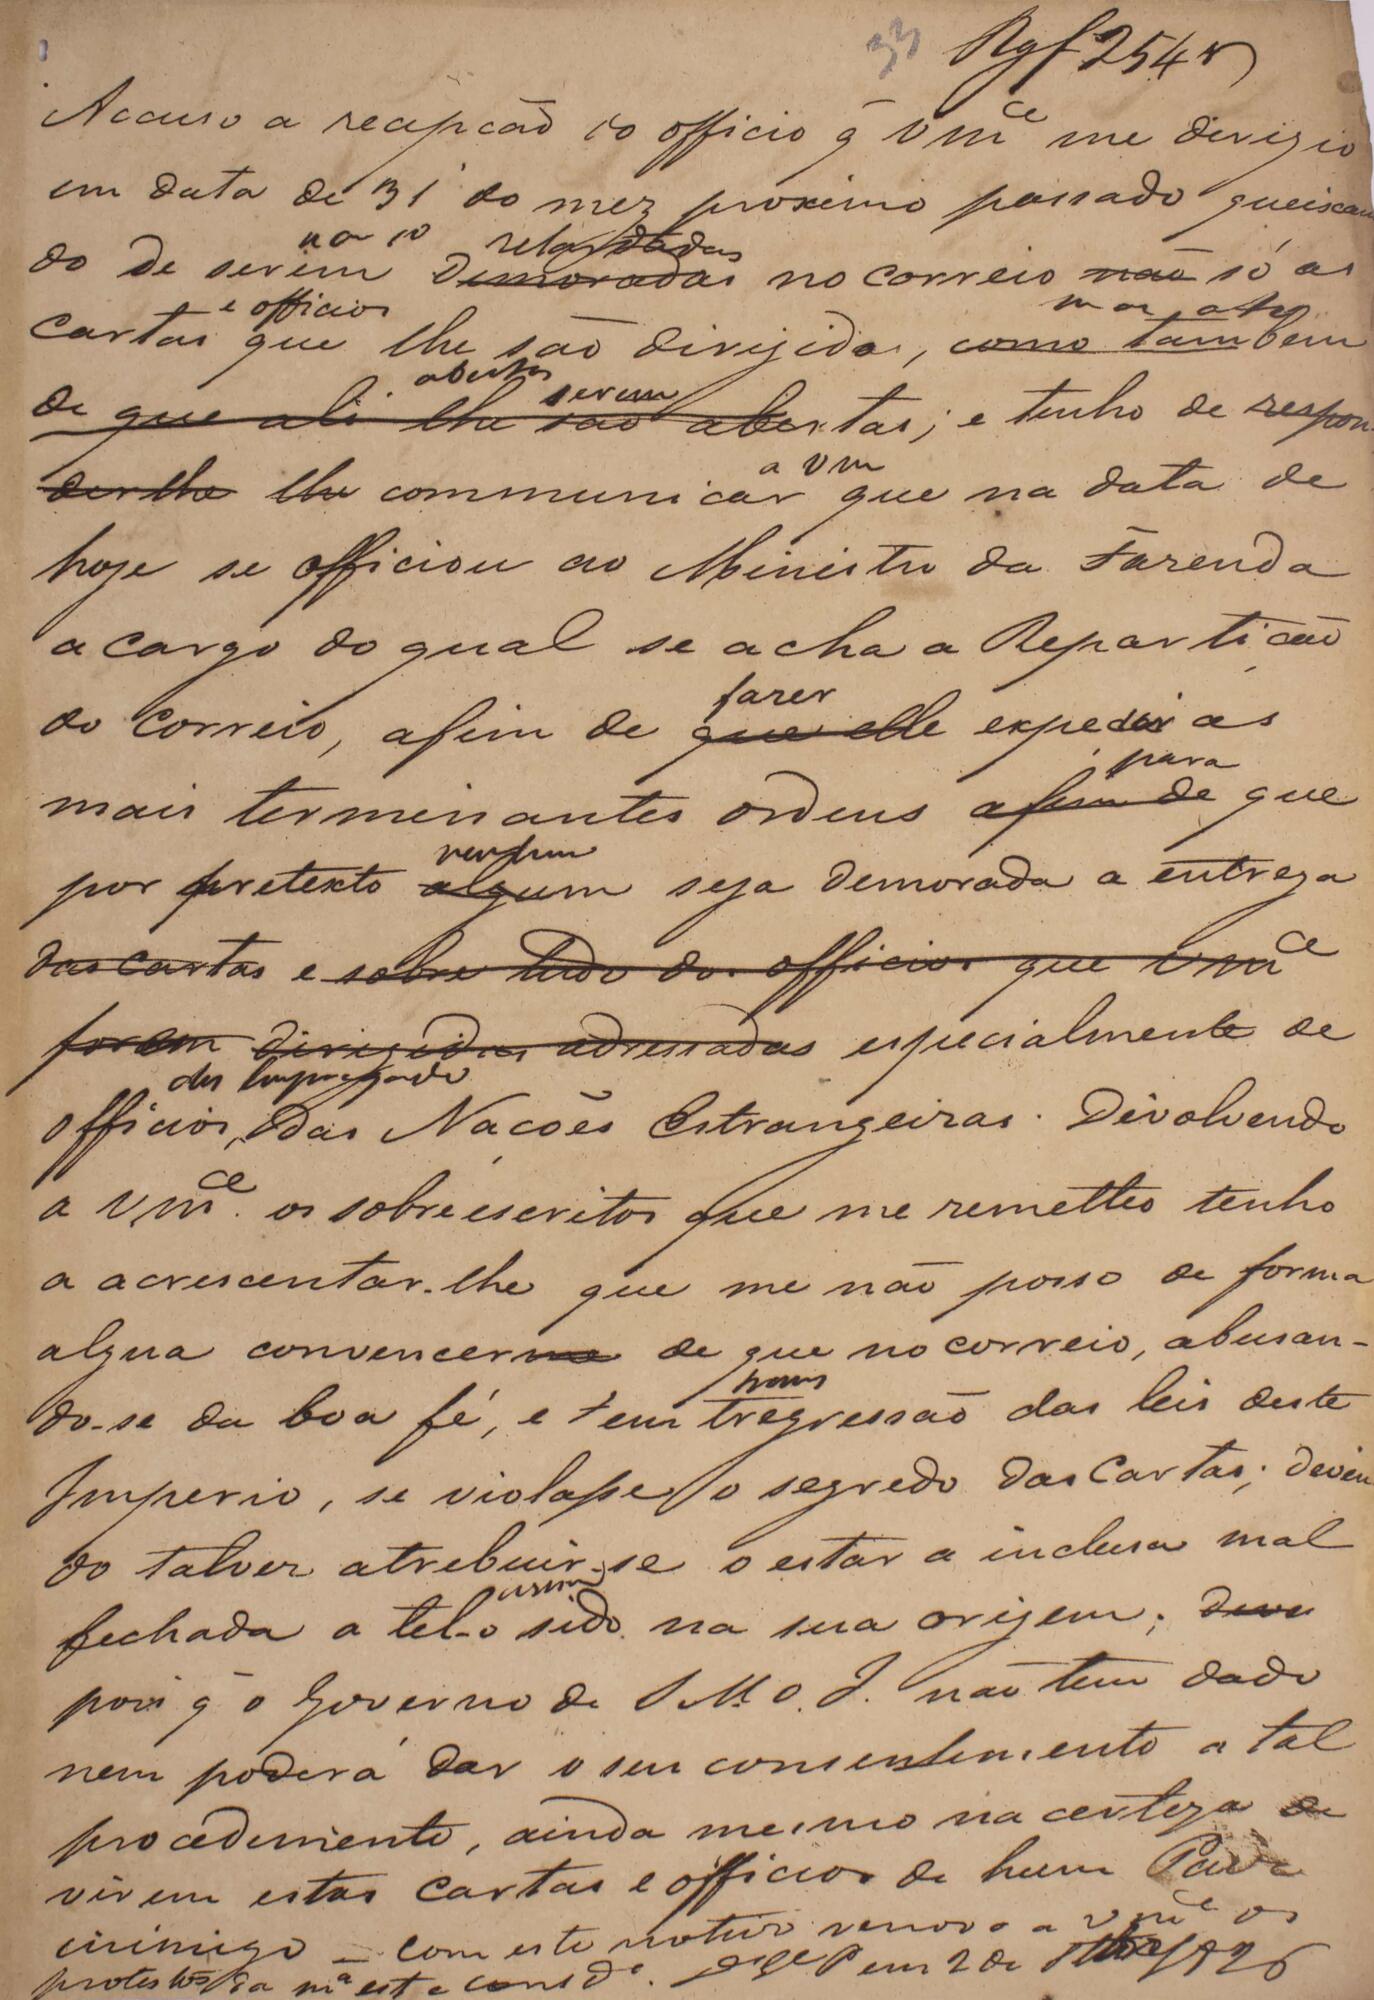 33 Rgf 254 v
Accuso a recepção do officio q̃ Vmce me dirigio
em data de 31 do mez proximo passado queixan
do de serem não só retardadas demoradas no correio não só as
cartas e officios que lhe são dirigidas, mas até como tambem
de que ali lhe são abertas serem abertas; e tenho de respon
der lhe lhe communicar a Vm que na data de
hoje se officiou ao Ministro da Fazenda
a cargo do qual se acha a Repartição
do Correio, afim de fazer que elle expedir as
mais terminantes ordens afim de para que
por pretexto algum nenhum seja demorada a entrega
das cartas e sobre tudo dos officios que Vmce
forem dirigidas adressadas especialmente de
officios dos Empregados das Nações Estrangeiras. Divolvendo
a Vmce. os sobreescritos que me remetteo tenho
a acrescentar-lhe que me não posso de forma
algua convencerme de que no correio, abusan-
do-se da boa fé, e em tregressão trans das leis deste
Imperio, se violasse o segredo das Cartas; deven
do talvez atrebuir-se o estar a inclusa mal
fechada a tel-o assim sido na sua origem; deve
pois q̃ o Governo de S. M. O. I. não tem dado
nem poderá dar o seu consentimento a tal
procedimento, ainda mesmo na certeza de
virem estas cartas e officios de hum Paiz
inimigo – com este motivo renovo a Vmce os
protestos da ma est e consde. Ds Ge P em 2 de 1826